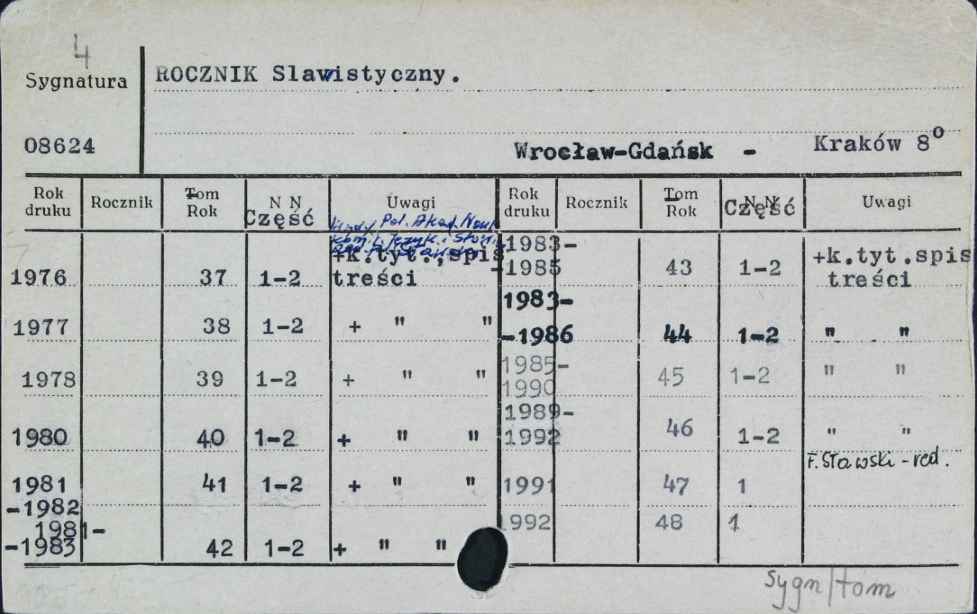 4
Sygnatura
ROCZNIK Slawistyczny.
08624
Wrocław-Gdańsk - Kraków 8°
Rok druku Rocznik Tom Rok N N Część Uwagi Rok druku Rocznik Tom Rok N N Część Uwagi
Pol. Akad. Nauk
1976 37 1-2 +k.tyt.,spis treści
1977 38 1-2 + " "
1978 39 1-2 + " "
1980 40 1-2 + " "
1981 -1982 41 1-2 + " "
1981- -1983 42 1-2 + " "
1983- -1985 43 1-2 +k.tyt.spis treści
1983- -1986 44 1-2 " "
1985- 1990 45 1-2 " "
1989- 1992 46 1-2 " "
F. Sławski - red.
1991 47 1
1992 48 1
Sygn/tom